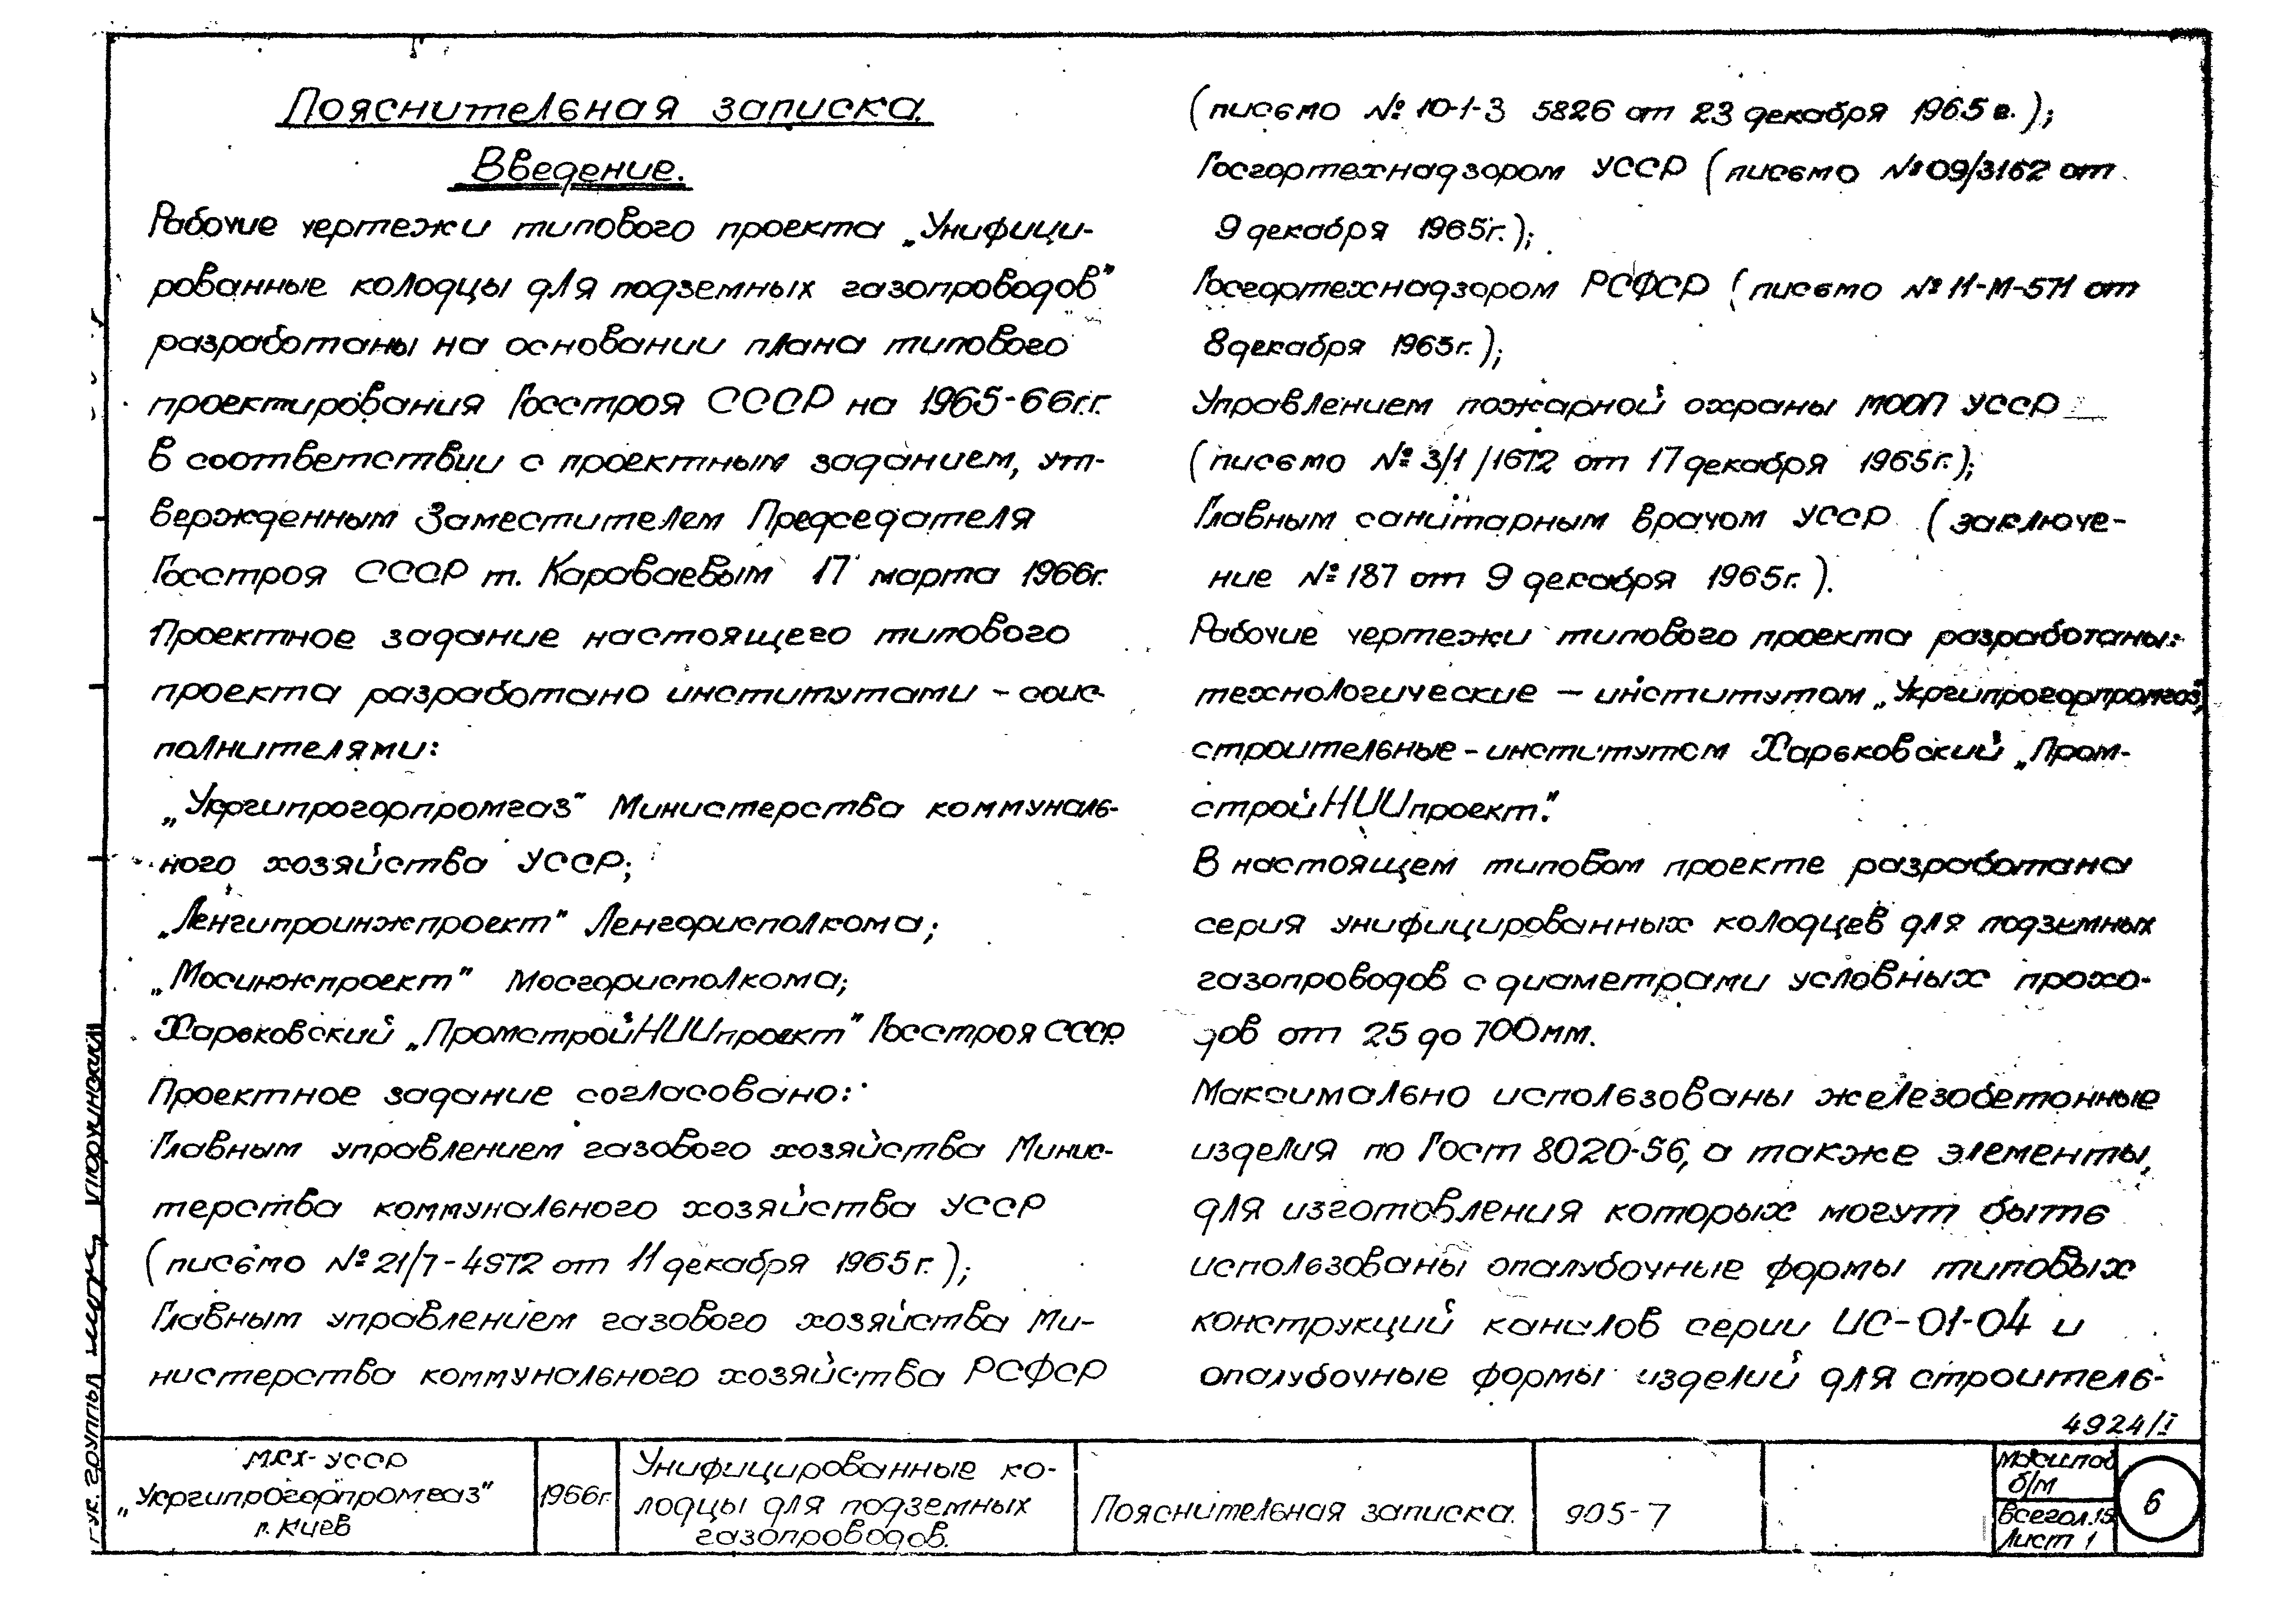 Пояснительная записка.
Введение.
Рабочие чертежи типового проекта „Унифици-
рованные колодцы для подземных газопроводов"
разработаны на основании плана типового
проектирования Госстроя СССР на 1965-66г.г.
в соответствии с проектным заданием, ут-
вержденным Заместителем Председателя
Госстроя СССР т. Караваевым 17 марта 1966г.
Проектное задание настоящего типового
проекта разработано институтами - соис-
полнителями:
„Укргипрогорпромгаз" Министерства коммуналь-
ного хозяйства УССР;
„Ленгипроинжпроект" Ленгорисполкома;
„Мосинжпроект" Мосгорисполкома;
Харьковский „ПромстройНИИпроект" Госстроя СССР.
Проектное задание согласовано:
Главным управлением газового хозяйства Минис-
терства коммунального хозяйства УССР
(письмо № 21/7-4972 от 11 декабря 1965г.);
Главным управлением газового хозяйства Ми-
нистерства коммунального хозяйства РСФСР
(письмо № 10-1-3 5826 от 23 декабря 1965 г.);
Госгортехнадзором УССР (письмо №09/3162 от
9 декабря 1965г.);
Госгортехнадзором РСФСР (письмо № 11-М-571 от
8 декабря 1965г.);
Управлением пожарной охраны МООП УССР
(письмо № 3/1/1672 от 17 декабря 1965г.);
Главным санитарным врачом УССР (заключе-
ние № 187 от 9 декабря 1965г.).
Рабочие чертежи типового проекта разработаны:
технологические — институтом „Укргипрогорпромгаз",
строительные - институтом Харьковский „Пром-
стройНИИпроект".
В настоящем типовом проекте разработана
серия унифицированных колодцев для подземных
газопроводов с диаметрами условных прохо-
дов от 25 до 700мм.
Максимально использованы железобетонные
изделия по Гост 8020-56, а также элементы,
для изготовления которых могут быть
использованы опалубочные формы типовых
конструкций каналов серии ИС-01-04 и
опалубочные формы изделий для строитель-
4924/I
МКХ-УССР
„Укргипрогорпромгаз"
г. Киев
1966г.
Унифицированные ко-
лодцы для подземных
газопроводов.
Пояснительная записка.
905-7
Масштаб
б/м
Всего л. 15
Лист 1
6
Рук. группы